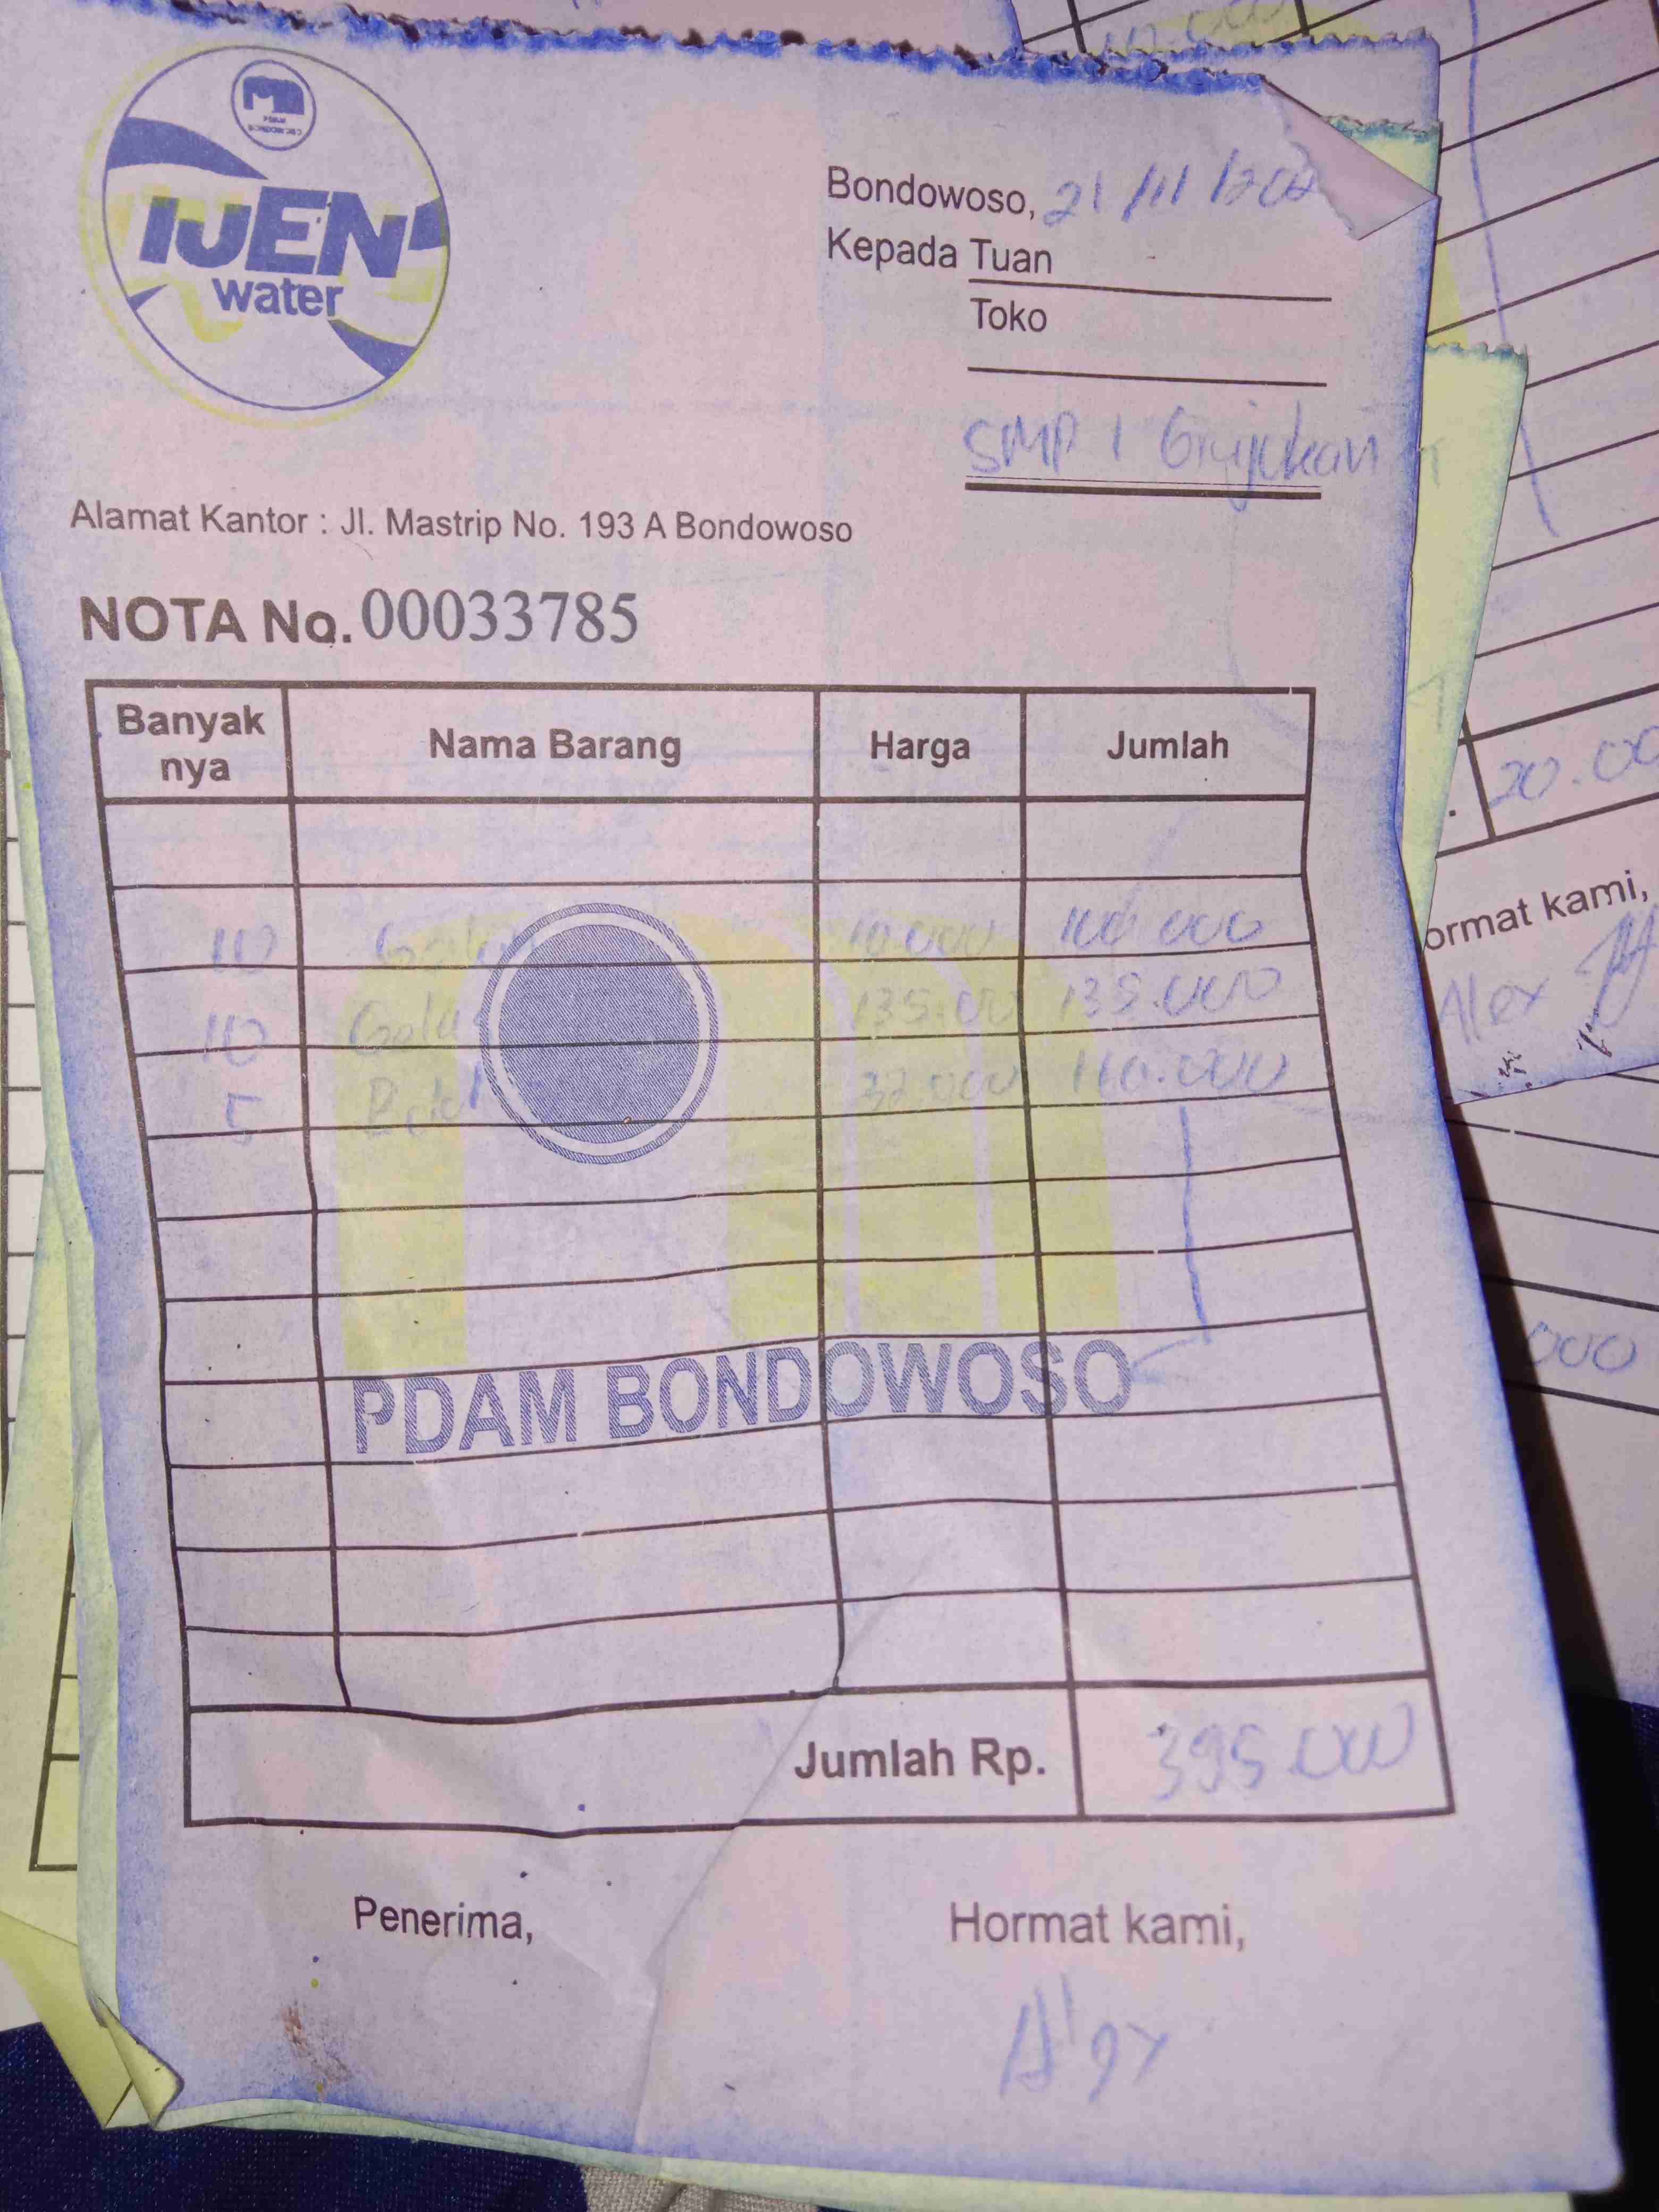 IJEN
water
Bondowoso, 21/11/202
Kepada Tuan
Toko
SMP 1 Grujukan
Alamat Kantor : Jl. Mastrip No. 193 A Bondowoso
NOTA No. 00033785
Banyak nya Nama Barang Harga Jumlah
10 10.000 100.000
10 135.000 135.000
5 32.000 160.000
PDAM BONDOWOSO
Jumlah Rp. 395.000
Penerima, Hormat kami,
Alex
20.00
ormat kami,
Alex
000